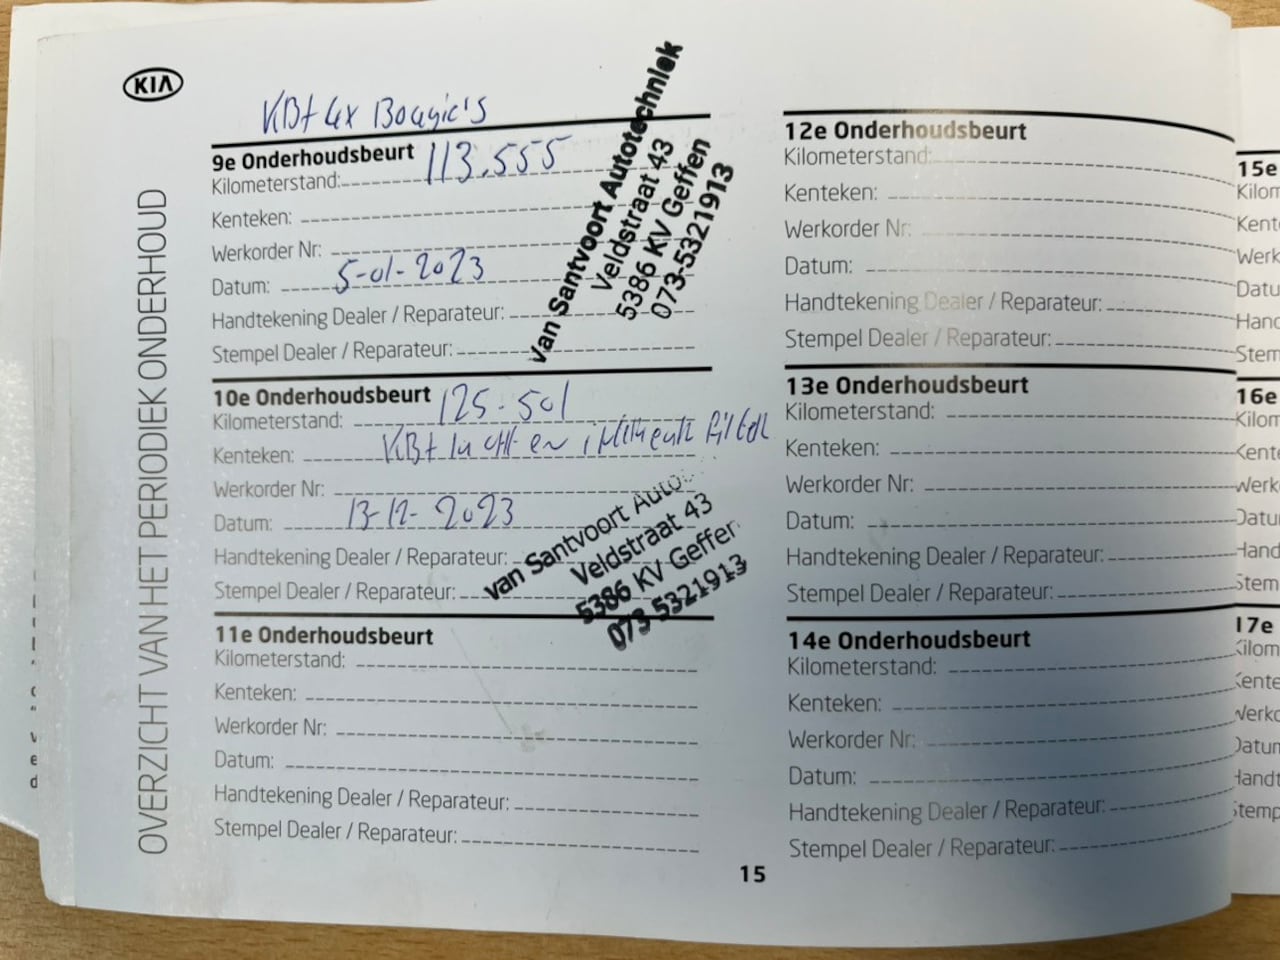 KIA
OVERZICHT VAN HET PERIODIEK ONDERHOUD
KBt 4x Bougie's
9e Onderhoudsbeurt
Kilometerstand: 113.555
Kenteken:
Werkorder Nr:
Datum: 5-01-2023
Handtekening Dealer / Reparateur:
Stempel Dealer / Reparateur:
Van Santvoort Autotechniek
Veldstraat 43
5386 KV Geffen
073-5321913
10e Onderhoudsbeurt
Kilometerstand: 125-501
Kenteken: KBt lucht en
Werkorder Nr:
Datum: 13-12-2023
Handtekening Dealer / Reparateur:
Stempel Dealer / Reparateur:
van Santvoort Auto
Veldstraat 43
5386 KV Geffen
073-5321913
11e Onderhoudsbeurt
Kilometerstand:
Kenteken:
Werkorder Nr:
Datum:
Handtekening Dealer / Reparateur:
Stempel Dealer / Reparateur:
12e Onderhoudsbeurt
Kilometerstand:
Kenteken:
Werkorder Nr:
Datum:
Handtekening Dealer / Reparateur:
Stempel Dealer / Reparateur:
13e Onderhoudsbeurt
Kilometerstand:
Kenteken:
Werkorder Nr:
Datum:
Handtekening Dealer / Reparateur:
Stempel Dealer / Reparateur:
14e Onderhoudsbeurt
Kilometerstand:
Kenteken:
Werkorder Nr:
Datum:
Handtekening Dealer / Reparateur:
Stempel Dealer / Reparateur:
15
15e
Kilom
Kent
Werk
Datu
Hand
Stem
16e
Kilon
Kente
Werk
Datu
Hand
Stem
17e
Kilom
Kente
Werko
Datun
Handt
Stemp